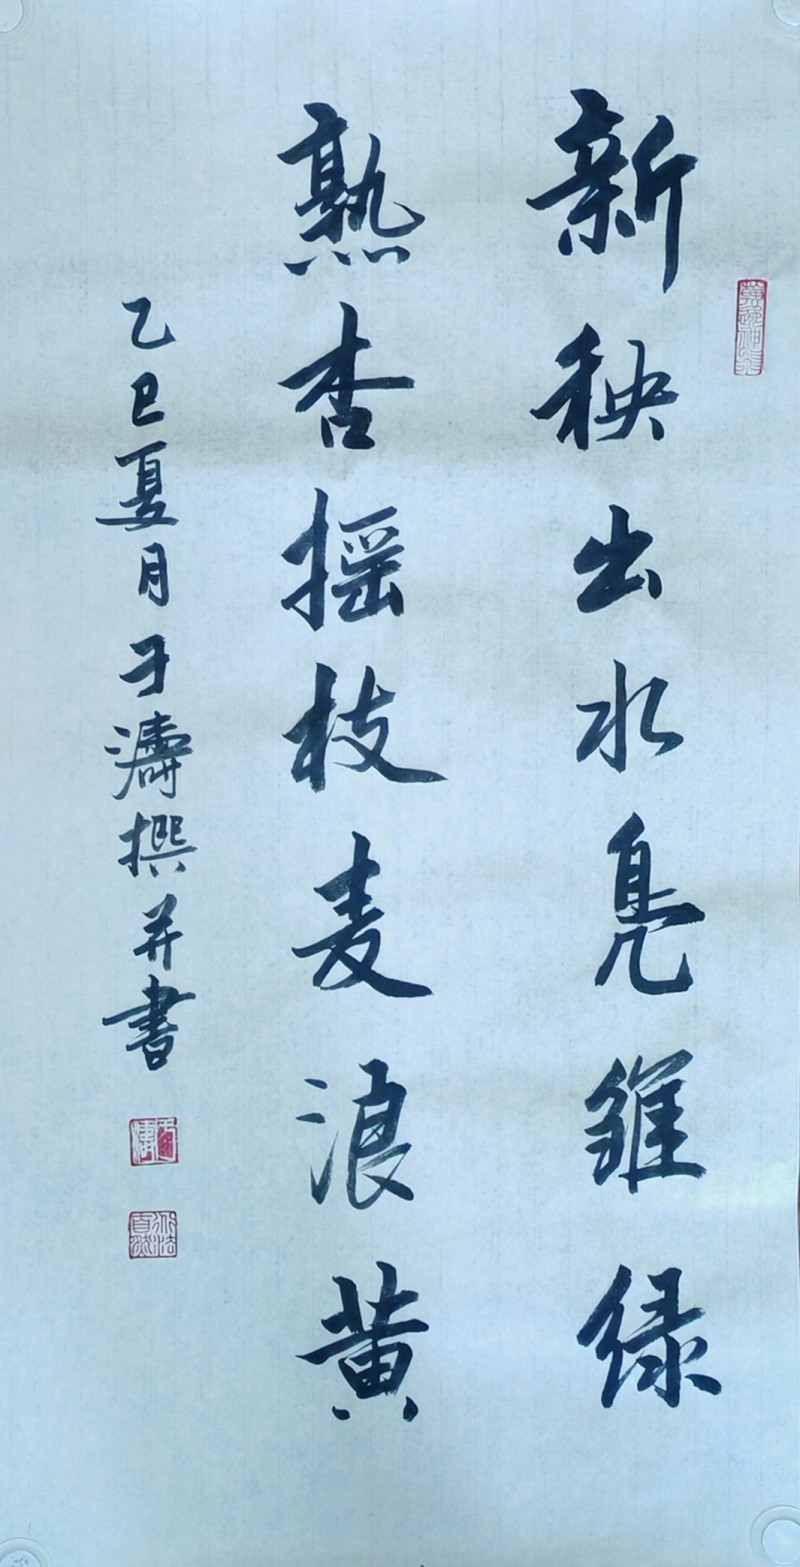 新秧出水凫雏绿
熟杏摇枝麦浪黄
乙巳夏月于濤撰并書